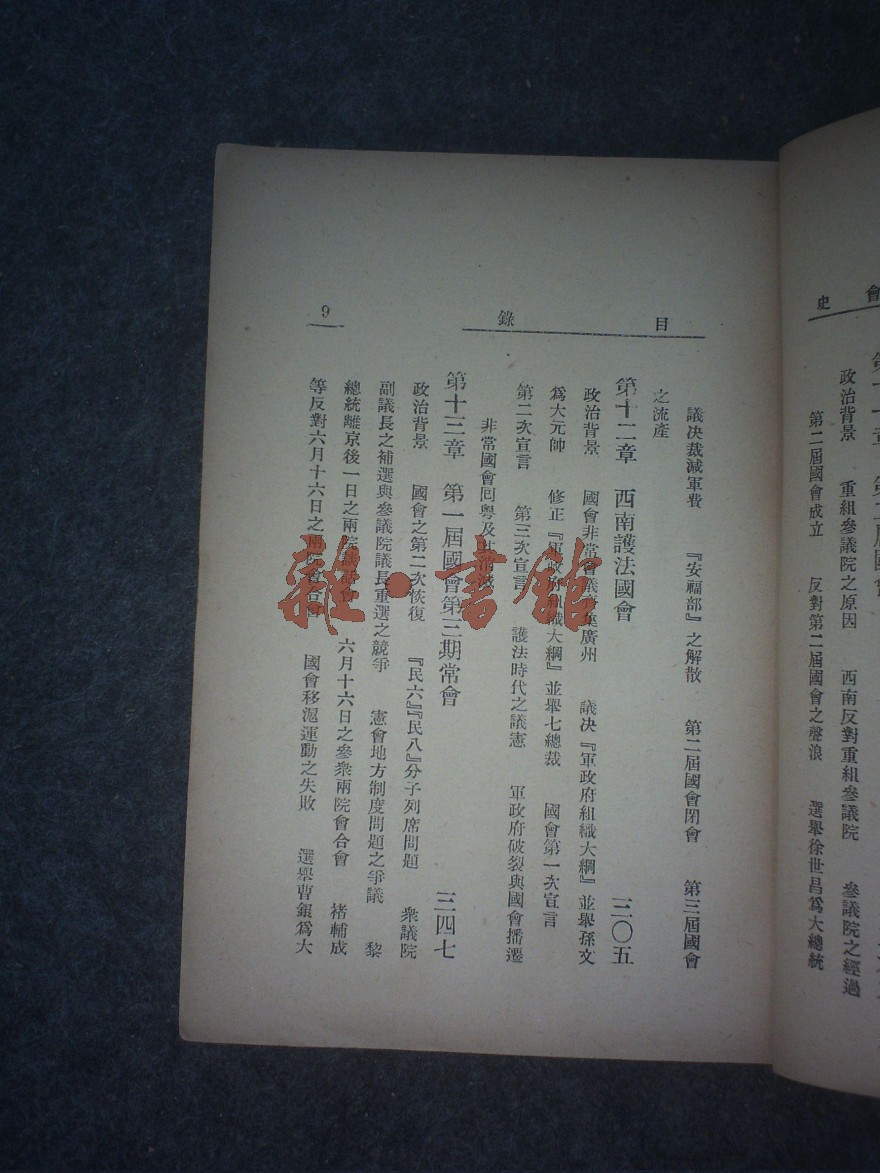 會史
政治背景　重組參議院之原因　西南反對重組參議院　參議院之經過
第二屆國會成立　反對第二屆國會之聲浪　選舉徐世昌爲大總統
目錄
9
議決裁減軍費　『安福部』之解散　第二屆國會閉會　第三屆國會
之流產
第十二章　西南護法國會　三〇五
政治背景　國會非常會議　廣州　議決『軍政府組織大綱』並舉孫文
爲大元帥　修正『軍政府組織大綱』並舉七總裁　國會第一次宣言
第二次宣言　第三次宣言　護法時代之議憲　軍政府破裂與國會播遷
非常國會回粤及其消滅
第十三章　第一屆國會第三期常會　三四七
政治背景　國會之第二次恢復　『民六』『民八』分子列席問題　衆議院
副議長之補選與參議院議長重選之競爭　憲會地方制度問題之爭議　黎
總統離京後一日之兩院　會　六月十六日之參衆兩院會合會　褚輔成
等反對六月十六日之兩院會合會　國會移滬運動之失敗　選舉曹錕爲大
雜·書館